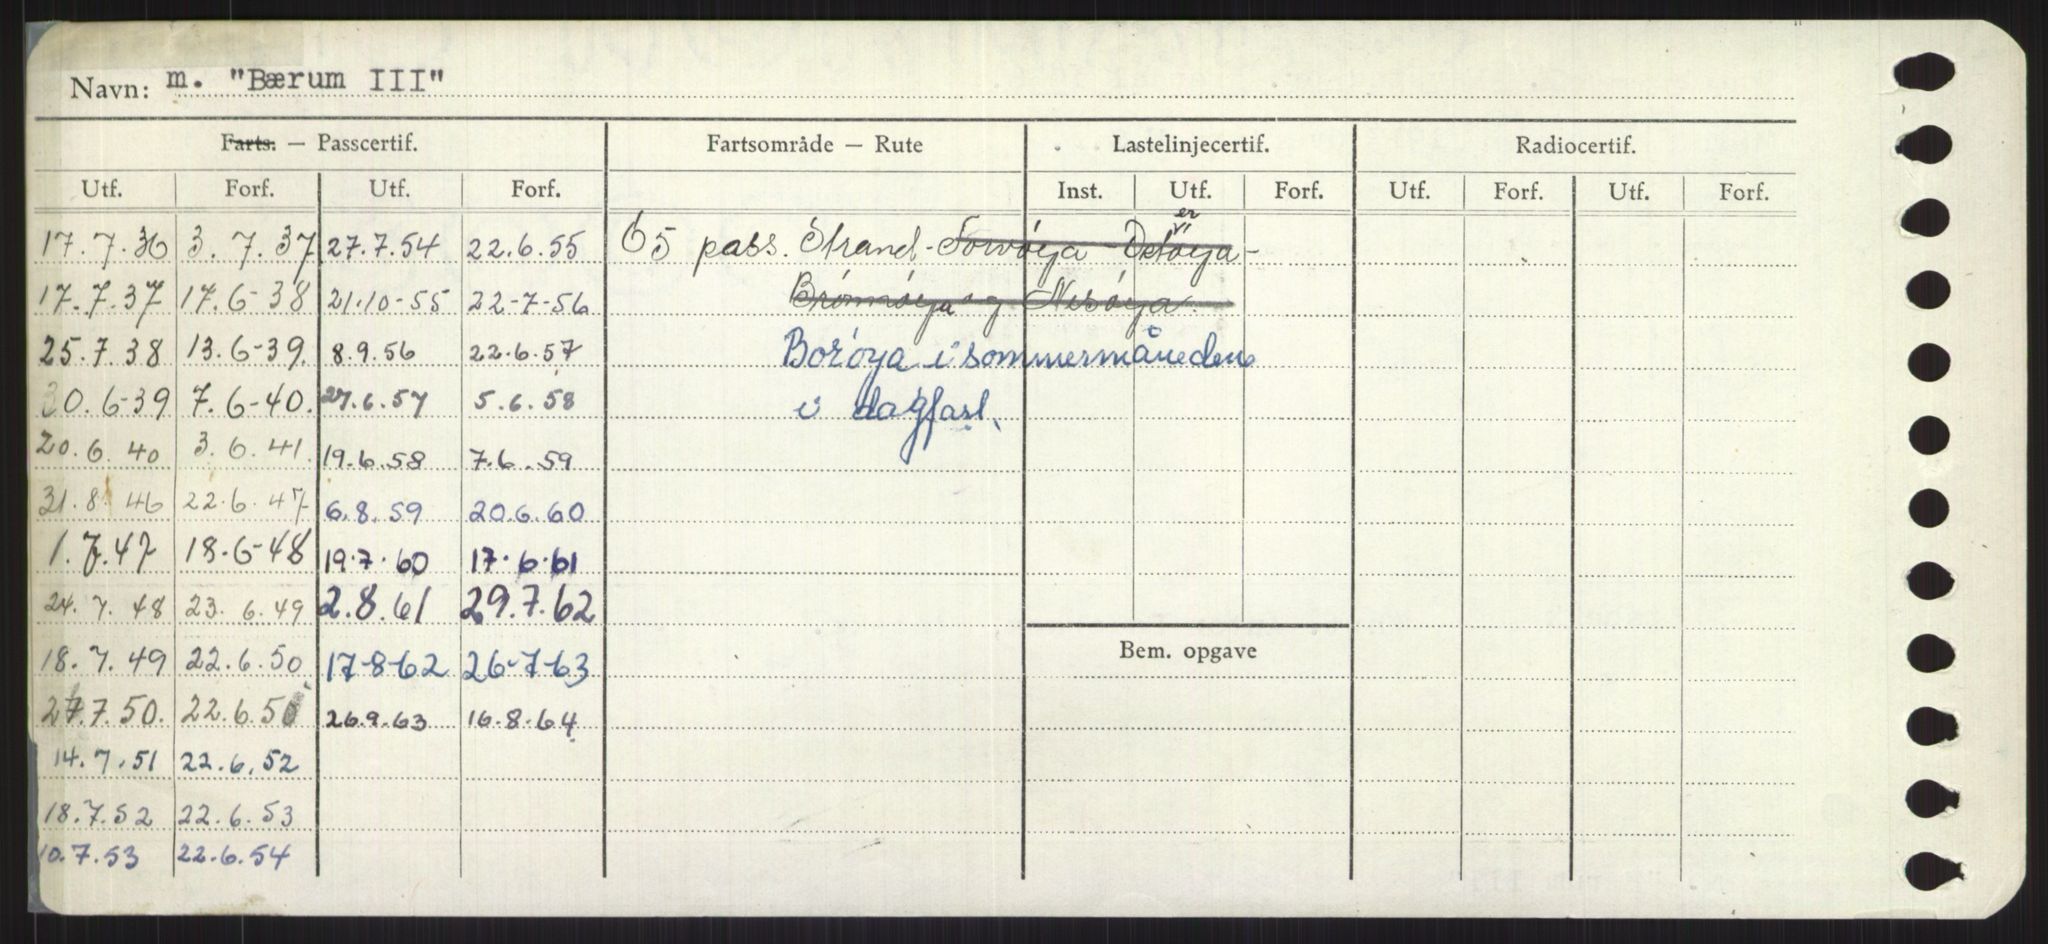 Navn: m. "Bærum III"
Farts. — Passcertif. Fartsområde — Rute Lastelinjecertif. Radiocertif.
Utf. Forf. Utf. Forf. Inst. Utf. Forf. Utf. Forf. Utf. Forf.
17.7.36 3.7.37 27.7.54 22.6.55 65 pass. Strand-
17.7.37 17.6-38 21.10-55 22-7-56 Brønnøya og Nesøya.
25.7.38 13.6-39. 8.9.56 22.6.57 Borøya i sommermånedene
30.6-39 7.6-40. 27.6.57 5.6.58 i dagfart.
20.6.40 3.6.41. 19.6.58 7.6.59
31.8.46 22.6.47 6.8.59 20.6.60
1.7.47 18.6-48 19.7.60 17.6.61
24.7.48 23.6.49 2.8.61 29.7.62
Bem. opgave
18.7.49 22.6.50 17-8-62 26-7-63
27.7.50. 22.6.51 26.9.63 16.8.64.
14.7.51 22.6.52
18.7.52 22.6.53
10.7.53 22.6.54